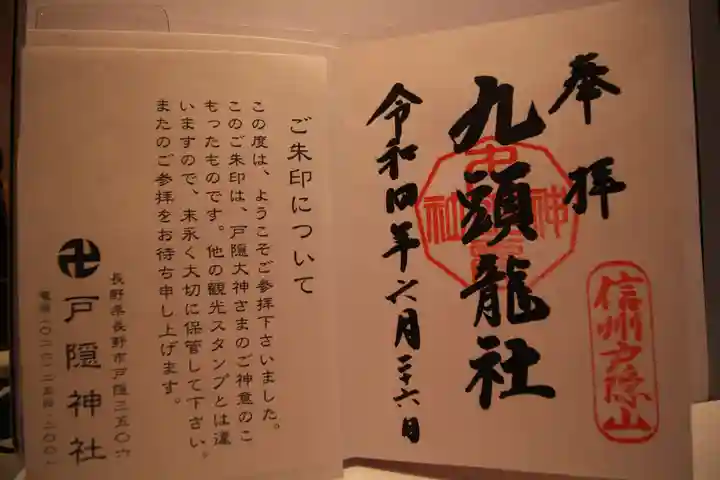 奉拝
九頭龍社
令和四年六月二十六日
信州戸隠山
ご朱印について
この度は、ようこそご参拝下さいました。
このご朱印は、戸隠大神さまのご神意のこ
もったものです。他の観光スタンプとは違
いますので、末永く大切に保管して下さい。
またのご参拝をお待ち申し上げます。
卍戸隠神社
長野県長野市戸隠三五〇六